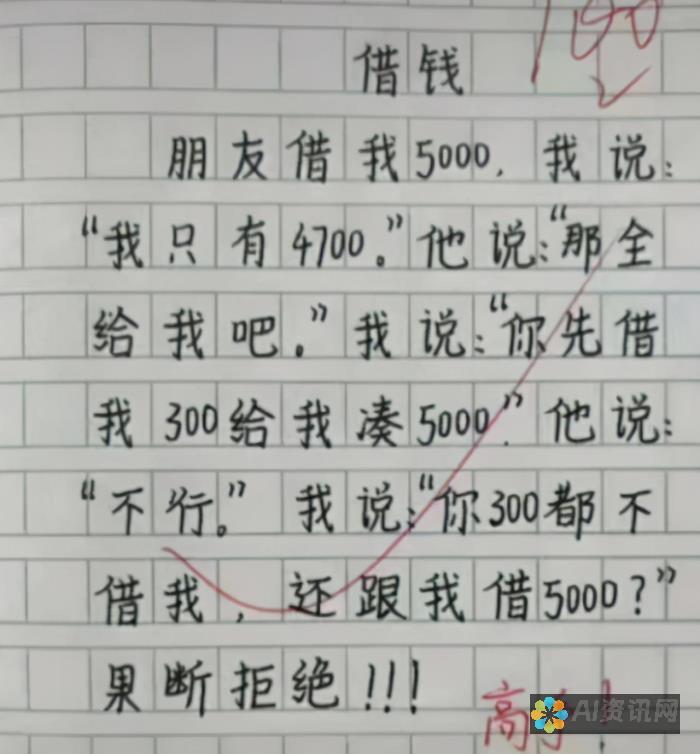 100
借钱
朋友借我5000,我说:
“我只有4700。”他说:“那全
给我吧。”我说:“你先借
我300给我凑5000”他说:
“不行。”我说:“你300都不
借我,还跟我借5000?”
果断拒绝!!!
高
AI资讯网